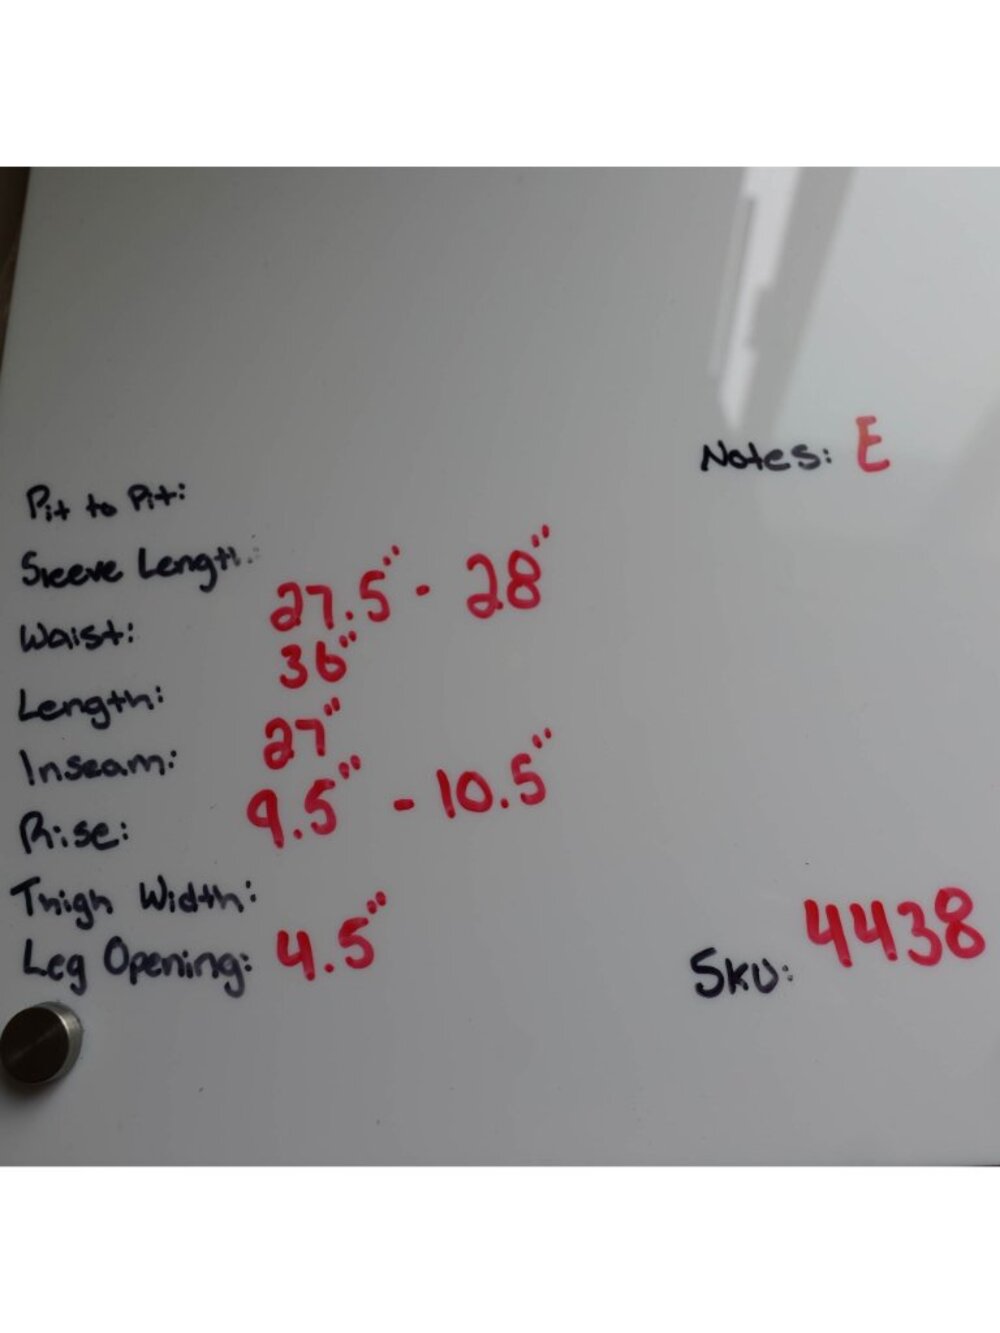 Notes: E
Pit to Pit:
Sleeve Length:
Waist: 27.5" - 28"
Length: 36"
Inseam: 27"
Rise: 9.5" - 10.5"
Thigh Width:
Leg Opening: 4.5"
Sku: 4438